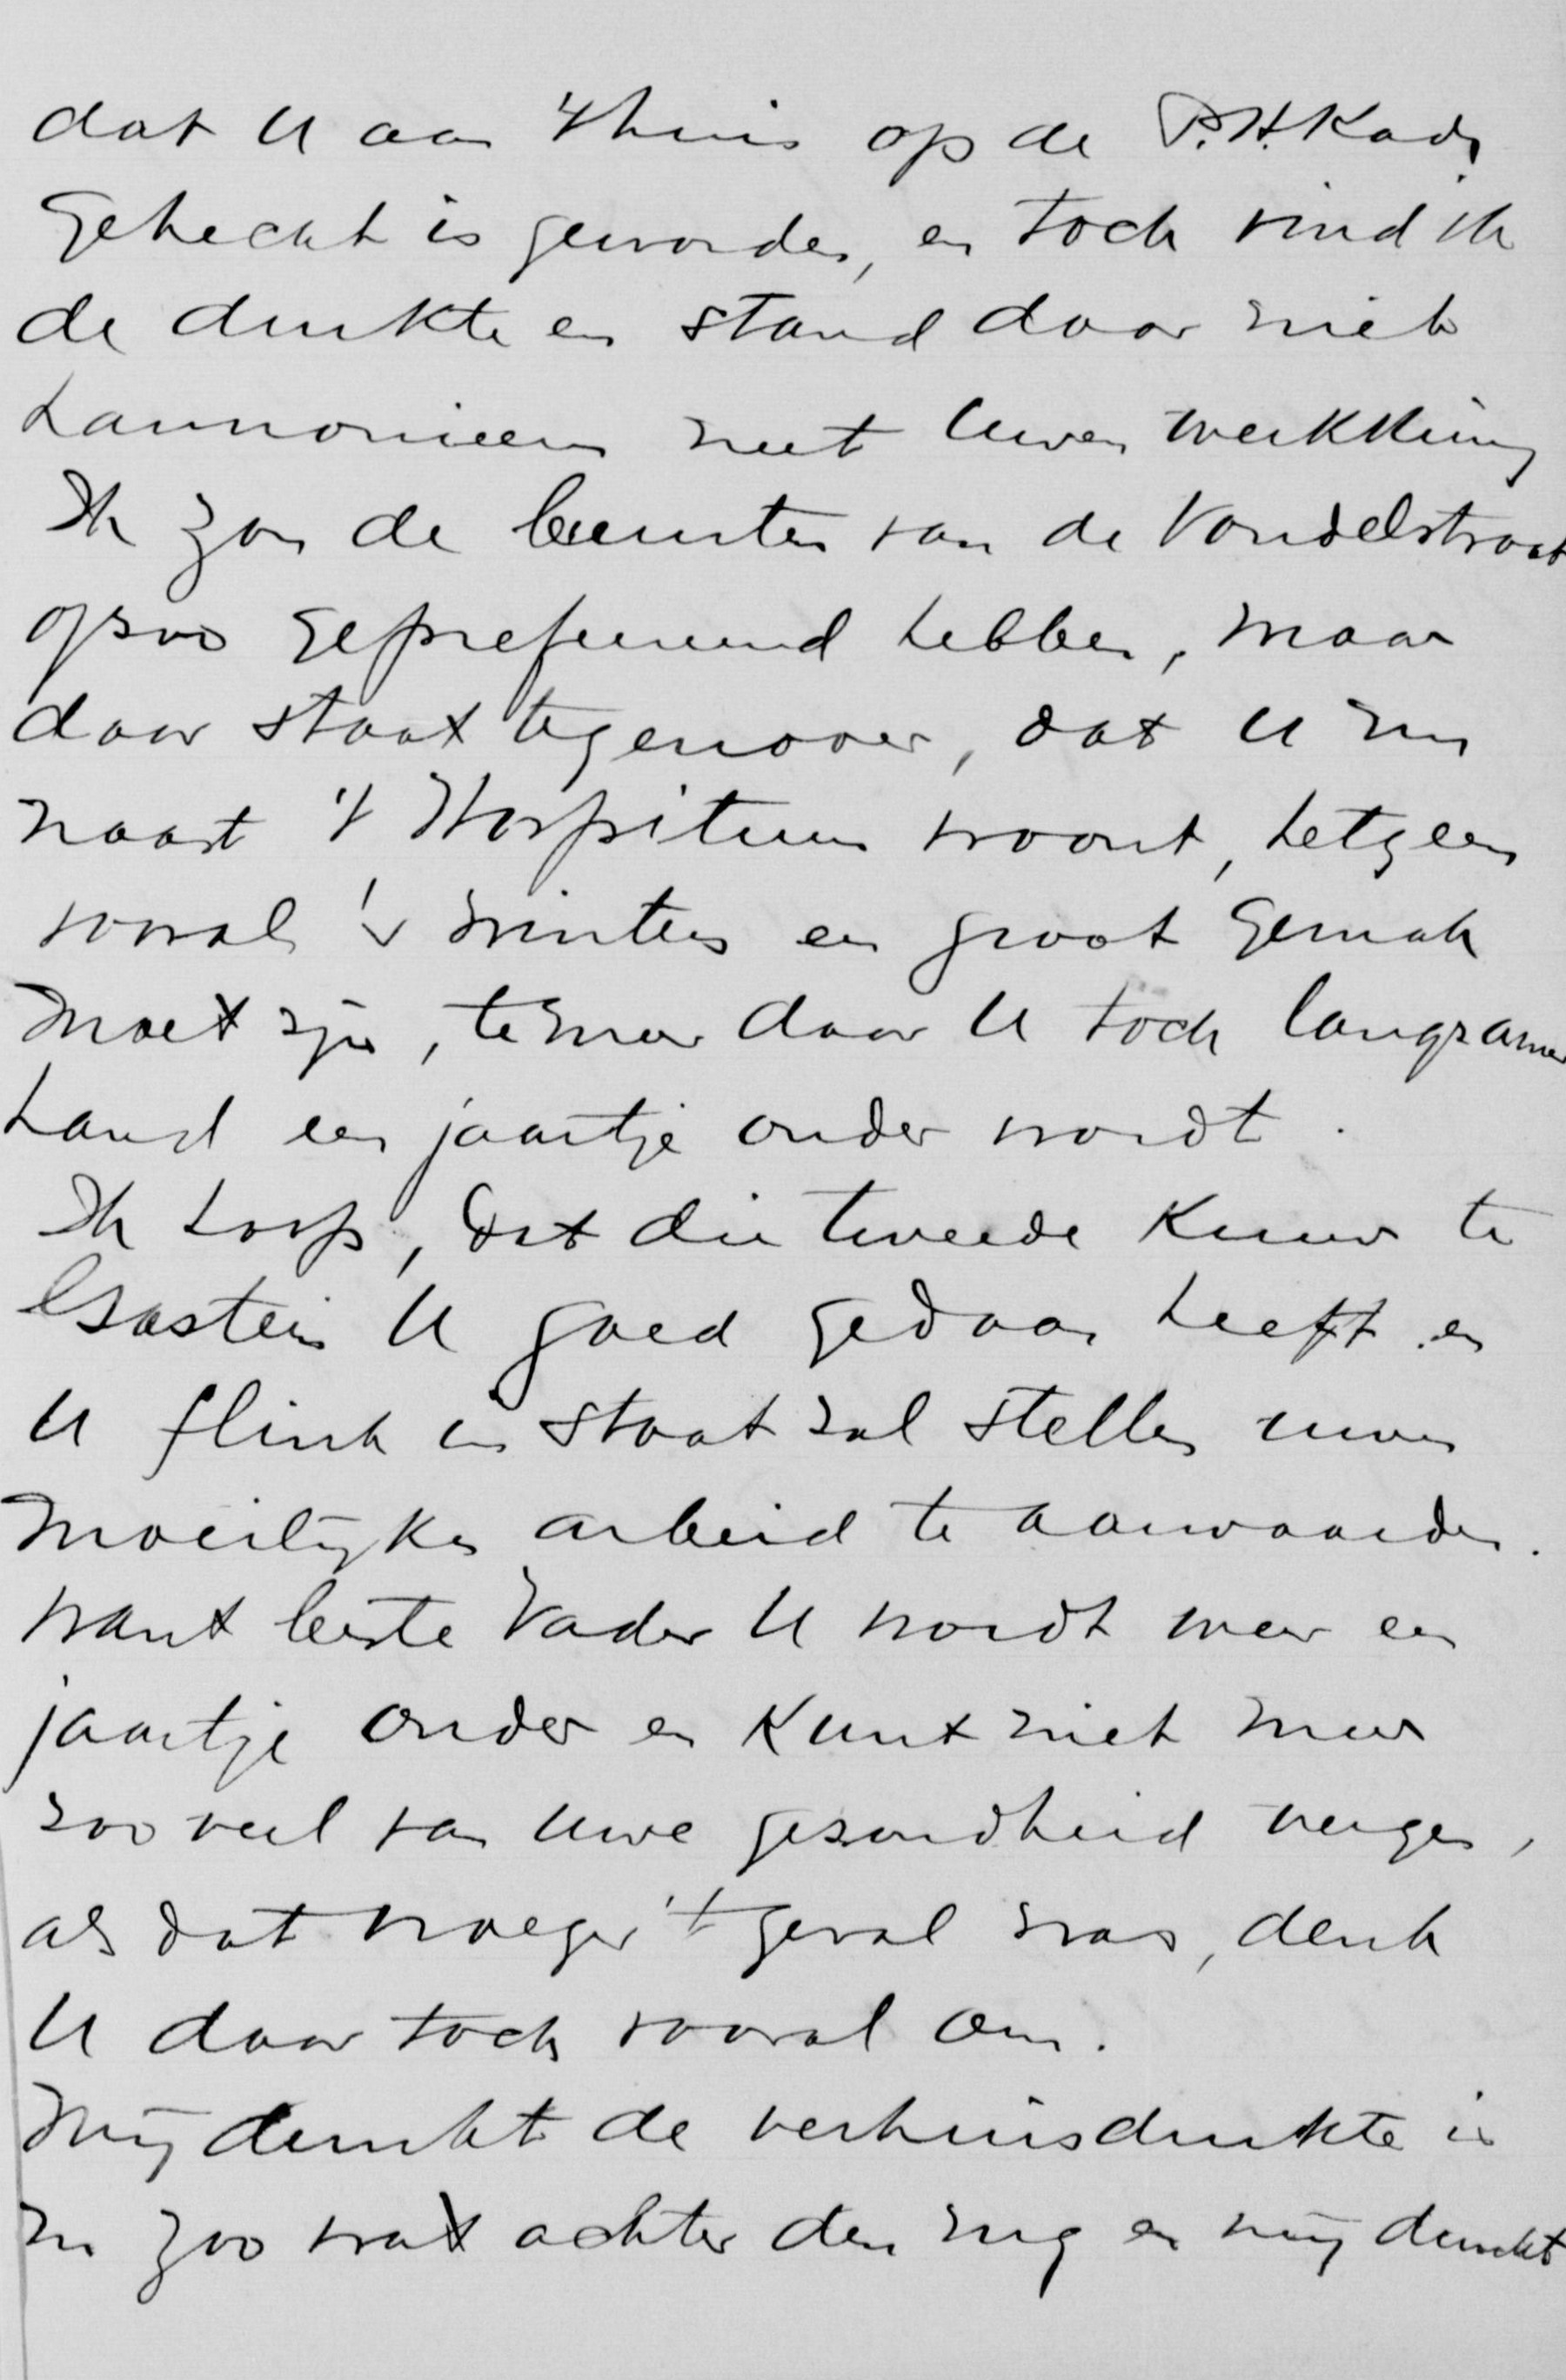 dat U aan 't huis op de P.H. Kade
gehecht is geworden, en toch vind ik
de drukte en stand daar niet
harmonieeren met Uwen werkkring
Ik zou de buurten van de Vondelstraat
of zoo geprefereerd hebben, maar
daar staat tegenover, dat U nu
naast 't Hospitium woont, hetgeen
vooral 's winters een groot gemak
moet zijn, te meer daar U toch langzamer
hand een jaartje ouder wordt.
Ik hoop, dat die tweede kuur te
Gastein U goed gedaan heeft en
U flink in staat zal stellen uwen
moeilijken arbeid te aanvaarden.
Want beste Vader U wordt weer een
jaartje ouder en kunt niet meer
zoo veel van Uwe gezondheid vergen,
als dat vroeger 't geval was, denk
U daar toch vooral om.
Mij dunkt de verhuisdrukte is
nu zoo wat achter den rug en mij dunkt